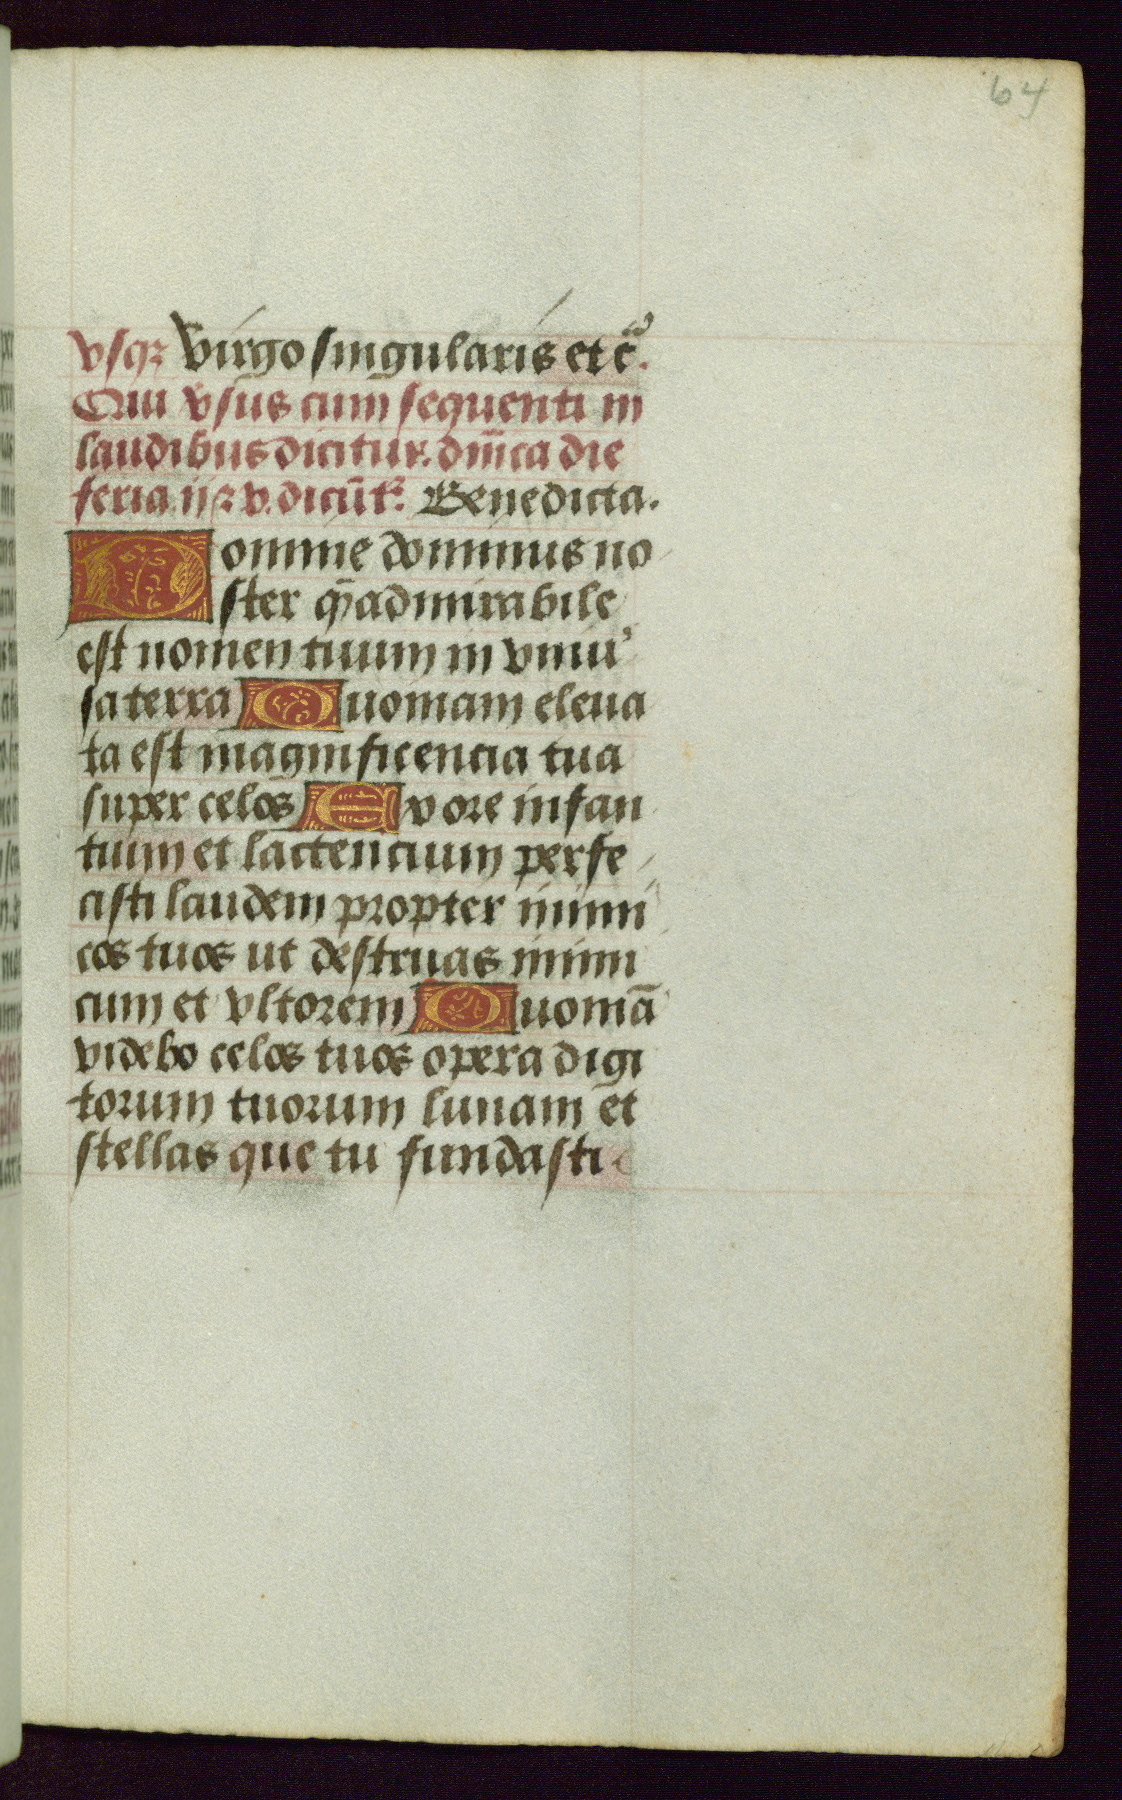 64
vsqꝫ Virgo singularis et c̃.
Qui vsus cum sequenti in
laudibus dicitur. dn̄ica die
feria ii ꝫ v. dicūt᷑. Benedicta.
Domine dominus no
ster qͫ admirabile
est nomen tuum in vniu'
sa terra Quoniam eleua
ta est magnificencia tua
super celos Ex ore infan
tium et lactencium perfe
cisti laudem propter inimi
cos tuos ut destruas inimi
cum et vltorem Quoniā
videbo celos tuos opera digi
torum tuorum lunam et
stellas que tu fundasti